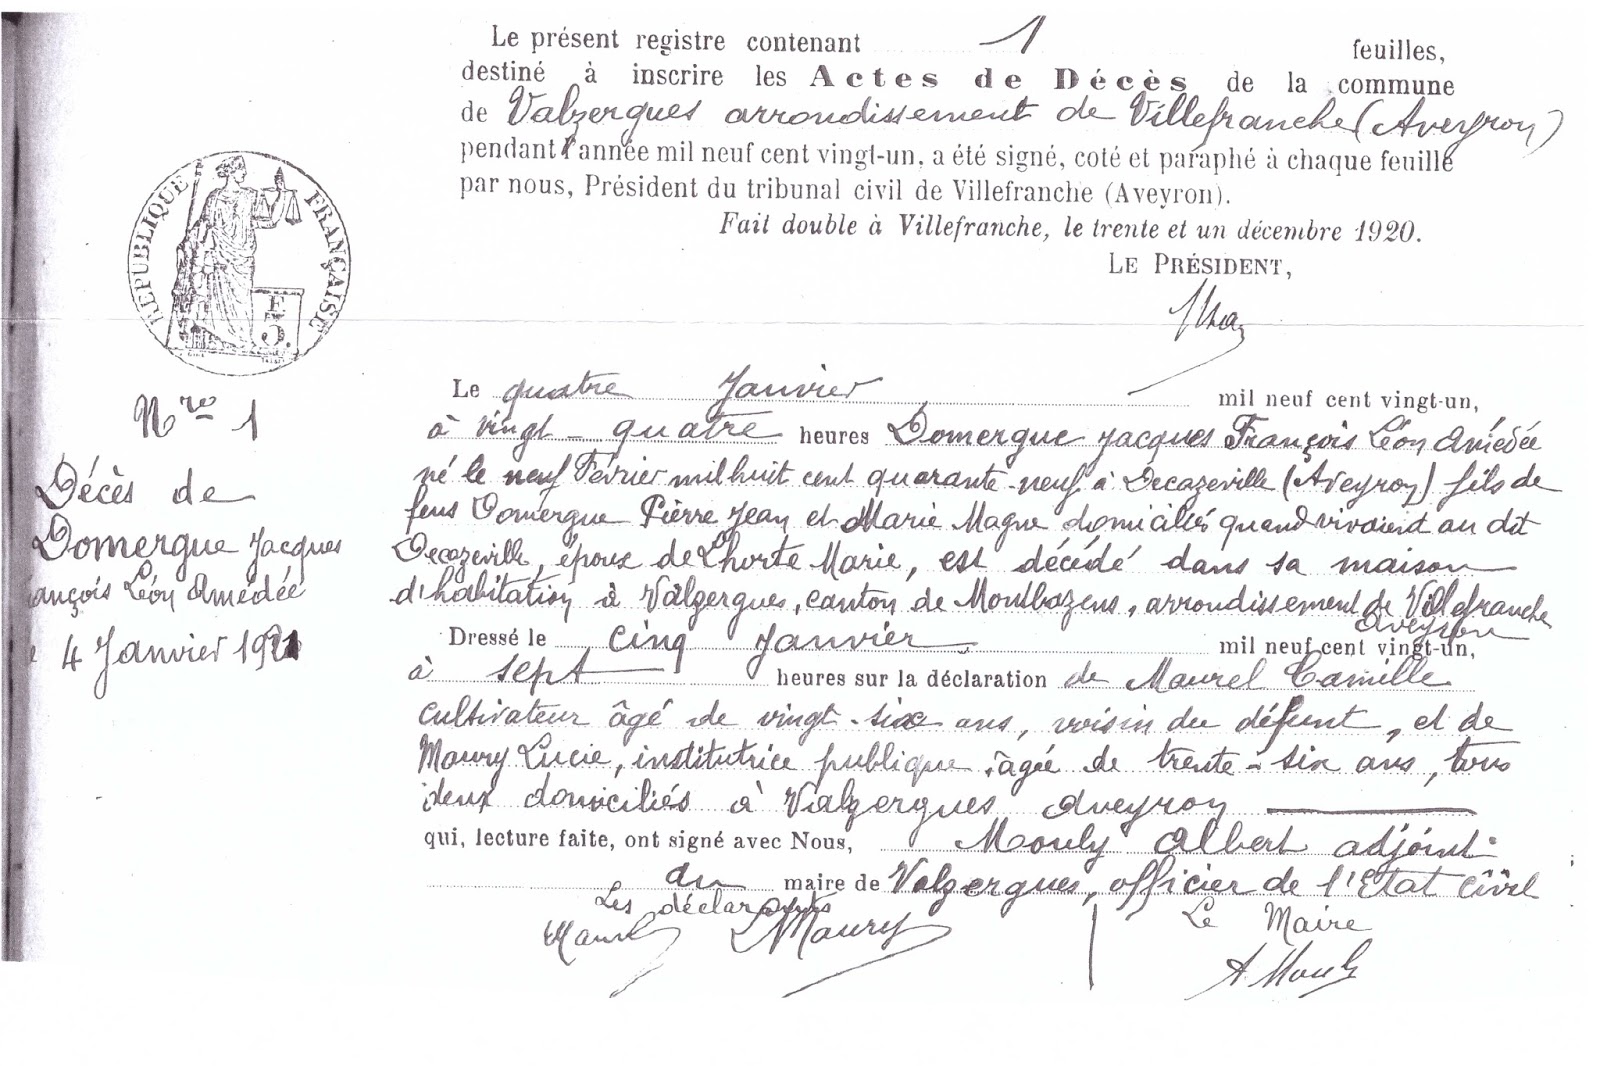 Le présent registre contenant 1 feuilles,
destiné à inscrire les Actes de Décès de la commune
de Valzergues arrondissement de Villefranche (Aveyron)
pendant l'année mil neuf cent vingt-un, a été signé, coté et paraphé à chaque feuille
par nous, Président du tribunal civil de Villefranche (Aveyron).
Fait double à Villefranche, le trente et un décembre 1920.
LE PRÉSIDENT,
RÉPUBLIQUE FRANÇAISE
F
5.
Nro 1
Décès de
Domergue Jacques
ançois Léon Amédée
4 Janvier 1921
Le quatre Janvier mil neuf cent vingt-un,
à vingt-quatre heures Domergue Jacques François Léon Amédée
né le neuf Février mil huit cent quarante-neuf à Decazeville (Aveyron) fils de
feus Domergue Pierre Jean et Marie Magne domiciliés quand vivaient au dit
Decazeville, époux de Lhorte Marie, est décédé dans sa maison
d'habitation à Valzergues, canton de Montbazens, arrondissement de Villefranche
Aveyron
Dressé le cinq Janvier mil neuf cent vingt-un,
à sept heures sur la déclaration de Maurel Camille
cultivateur âgé de vingt-six ans, voisin du défunt, et de
Maury Lucie, institutrice publique, âgée de trente-six ans, tous
deux domiciliés à Valzergues Aveyron
qui, lecture faite, ont signé avec Nous, Mouly Albert adjoint
au maire de Valzergues, officier de l'Etat civil
Les déclarants
Le Maire
Maurel LMaury
A Mouly